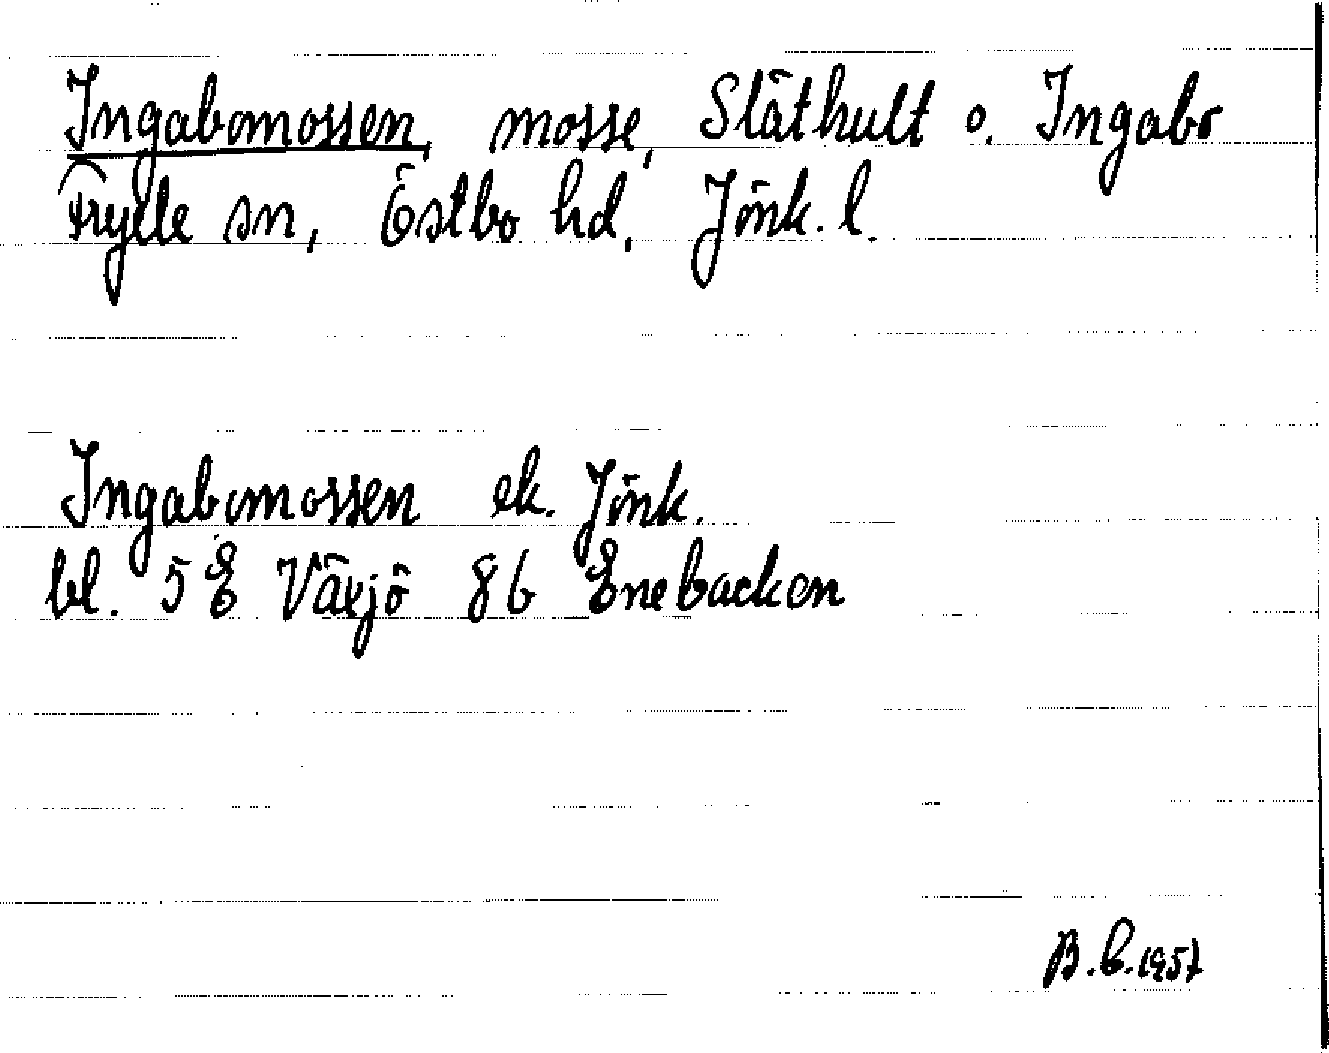 Ingabomossen, mosse, Släthult o. Ingabo
Fryele sn, Östbo hd, Jönk. l.
Ingabomossen ek. Jönk.
bl. 5 E Växjö 8b Enebacken
B.C.1957